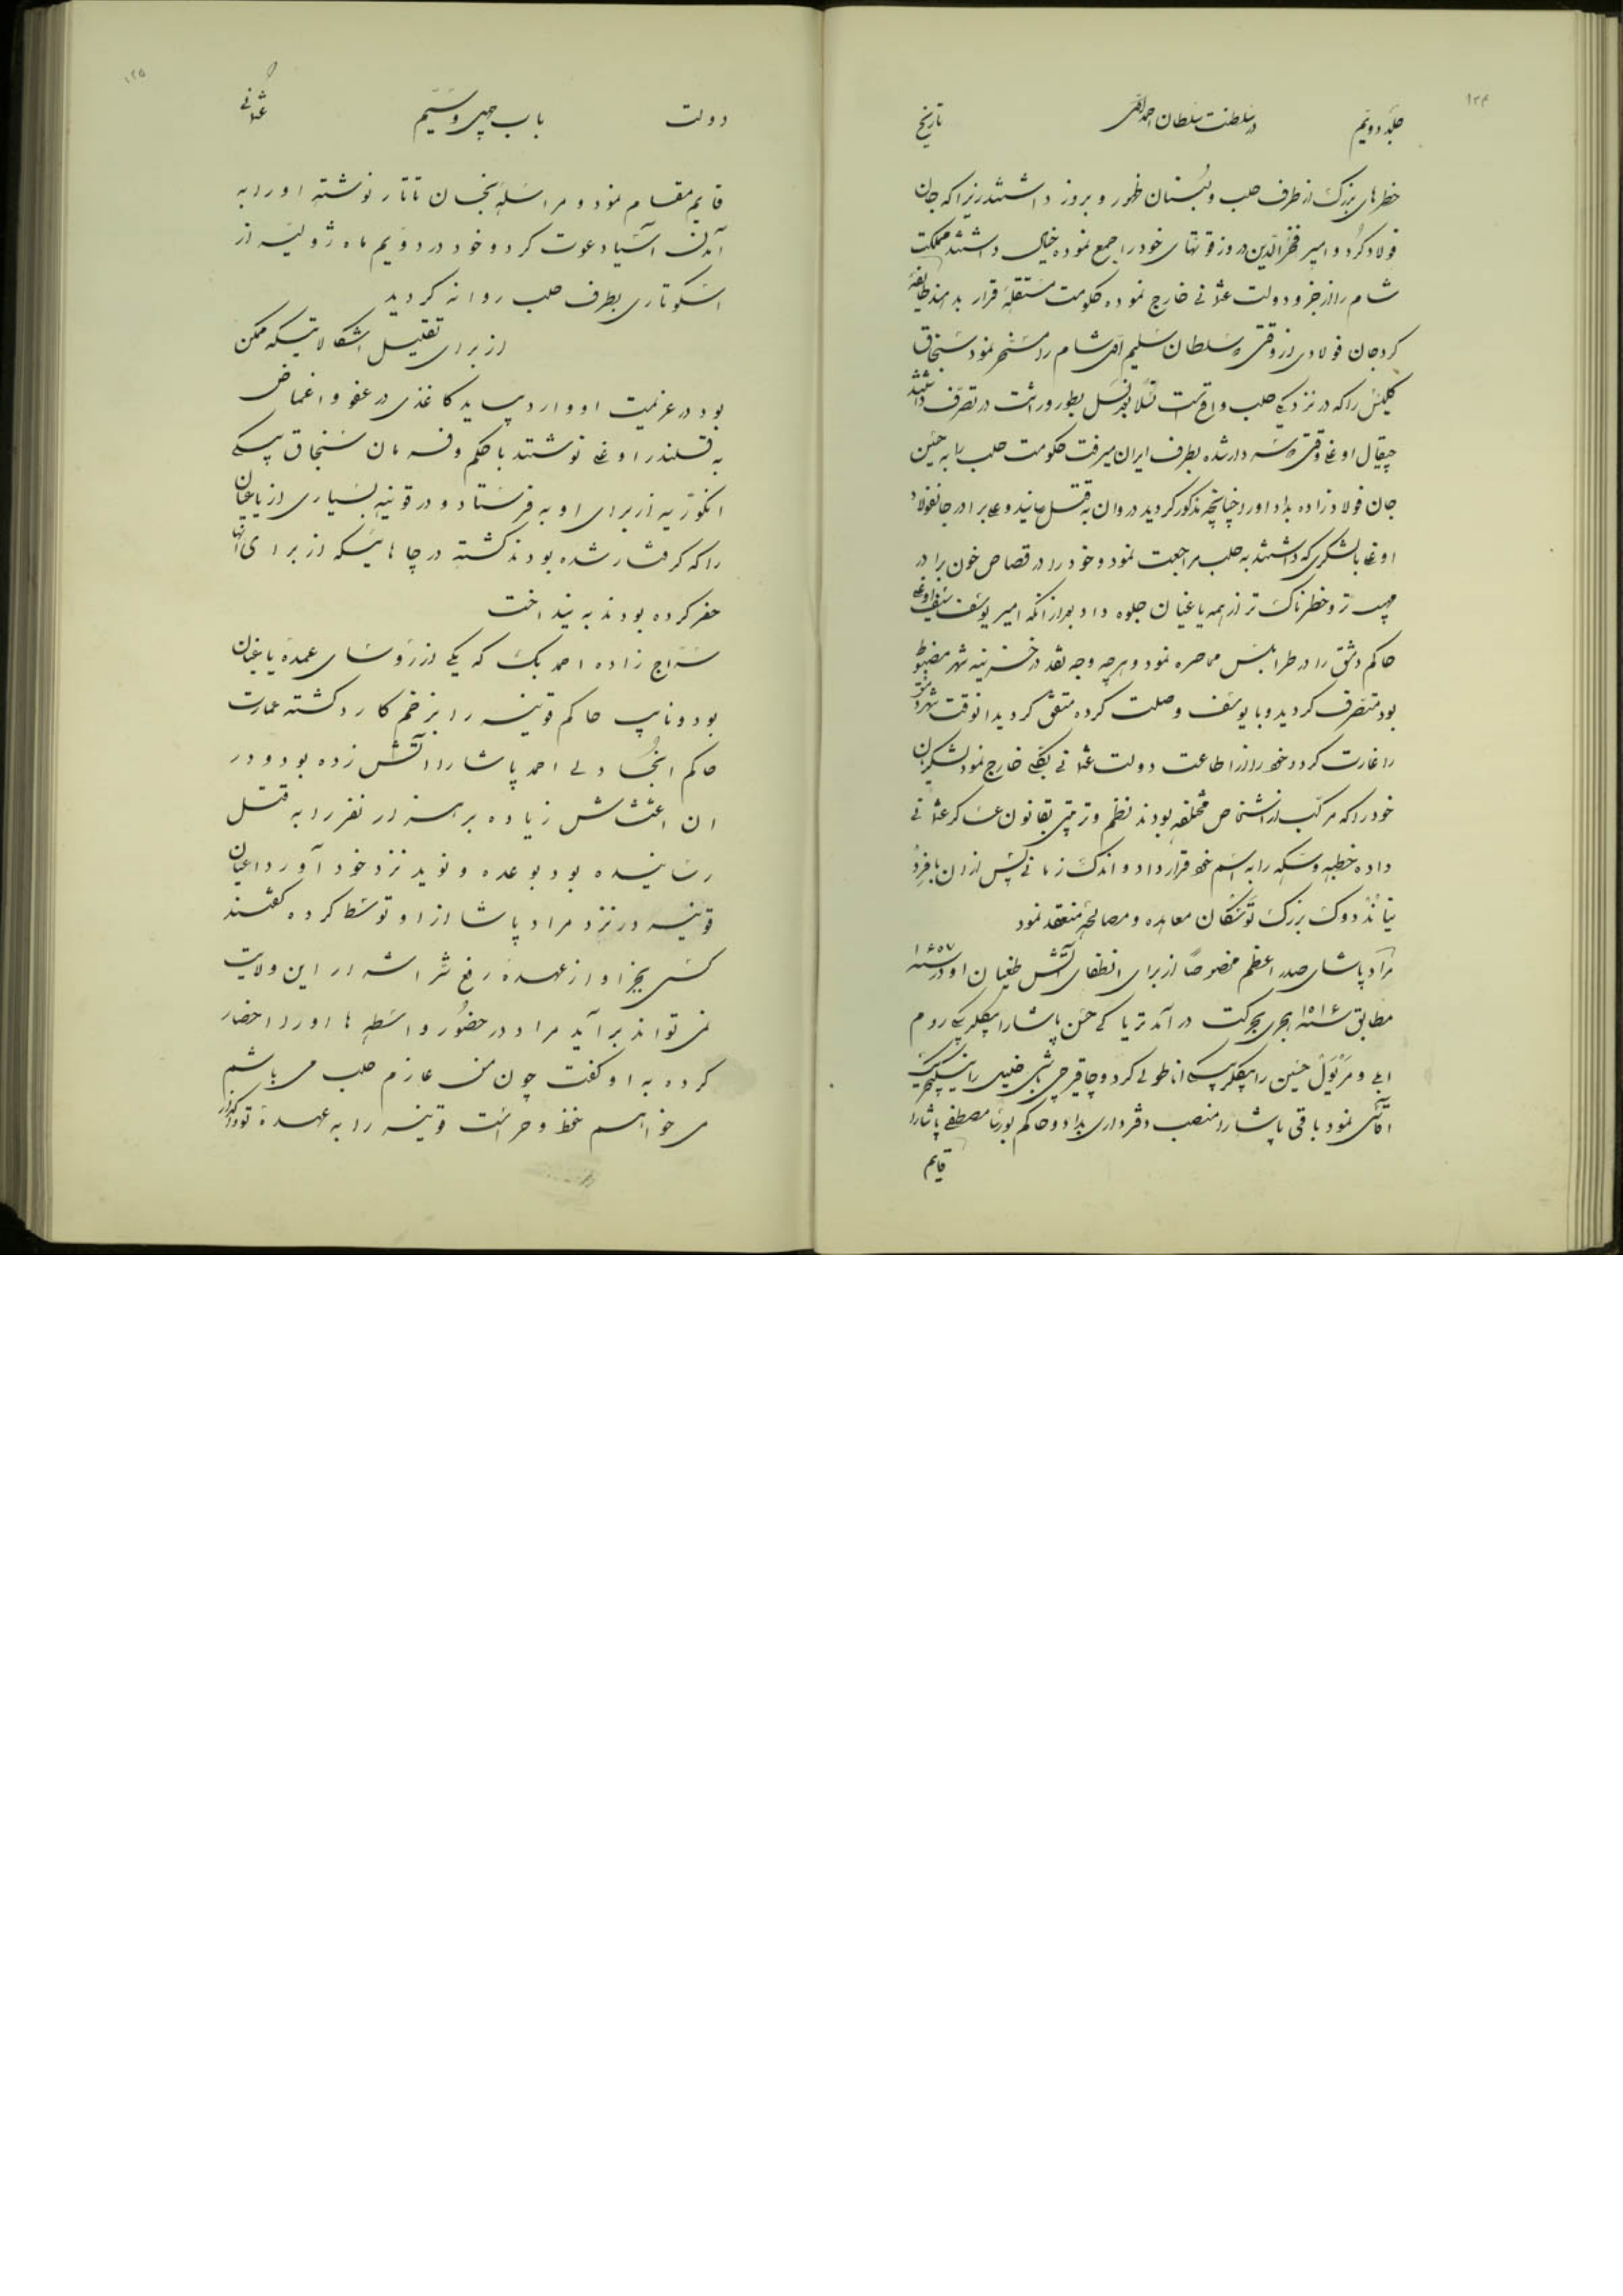 ۱۲۴
جلد دویم در سلطنت سلطان احمد اول تاریخ
خطرهای بزرگ از طرف حلب و لبنان ظهور و بروز داشتند زیرا که جان
فولاد کرد و امیر فخرالدین دروز قوتهای خود را جمع نموده خیال داشتند مملکت
شام را از جزو دولت عثمانی خارج نموده حکومت مستقله قرار بدهند طایفه
کرد جان فولادی از وقتی که سلطان سلیم اول شام را مسخر نمود سنجاق
کلیس را که در نزدیکی حلب واقع است نسلاً بعد نسل بطور وراثت در تصرف داشتند
چیقال اوغلی وقتی که سردار شده بطرف ایران میرفت حکومت حلب را به حسین
جان فولاد زاده بداد او را چنانچه مذکور گردید در وان به قتل رسانید و علی برادر جانفولاد
اوغلی با لشکری که داشتند به حلب مراجعت نمود و خود را در قصاص خون برادر
مهیب‌تر و خطرناک‌تر از همه یاغیان جلوه داد بعد از آنکه امیر یوسف سیف اوغلی
حاکم دمشق را در طرابلس محاصره نمود و هرچه وجه نقد در خزینه شهر مضبوط
بود متصرف گردید و با یوسف وصلت کرده متفق گردید آنوقت شهر دمشق
را غارت کرد و خود را از اطاعت دولت عثمانی بکلی خارج نمود لشکریان
خود را که مرکب از اشخاص مختلفه بودند نظم و ترتیبی بقانون عسکر عثمانی
داده خطبه و سکه را به اسم خود قرار داد و اندک زمانی پس از آن با فرد
یناند دوک بزرگ توسکان معاهده و مصالحه منعقد نمود
مراد پاشای صدر اعظم مخصوصاً از برای انطفای آتش طغیان او در سنه ۱۶۰۷
مطابق سنه ۱۰۱۶ هجری بحرکت در آمد تریاکی حسن پاشا را بیکلربیکی روم
ایلی و مریول حسین را بیکلربیکی اناطولی کرد و چاقرجی باشی خلیل را ینکیچریک
آقاسی نمود باقی پاشا را منصب دفترداری بداد و حاکم بورسا مصطفی پاشا را
قایم
۱۲۵
دولت باب چهل و سیم عثمانی
قایم مقام نمود و مراسله بخان تاتار نوشته او را به
آمدن آسیا دعوت کرد و خود در دویم ماه ژولیه از
اسکوتاری بطرف حلب روانه گردید
از برای تقلیل اشکالاتیکه ممکن
بود در عزیمت او وارد بیاید کاغذی در عفو و اغماض
به قلندر اوغلی نوشتند با حکم و فرمان سنجاق بیکی
انکوریه از برای او به فرستاد و در قونیه بسیاری از یاغیان
را که گرفتار شده بودند کشته در چاهائیکه از برای آنها
حفر کرده بودند به بینداخت
سراج زاده احمد بک که یکی از رؤسای عمده یاغیان
بود و نایب حاکم قونیه را بزخم کارد کشته عمارت
حاکم انجا دلی احمد پاشا را آتش زده بود و در
ان اغتشاش زیاده بر هزار نفر را به قتل
رسانیده بود بوعده و نوید نزد خود آورد اعیان
قونیه در نزد مراد پاشا از او توسط کرده گفتند
کسی بجز او از عهدۀ رفع شر اشرار این ولایت
نمی تواند بر آید مراد در حضور واسطه ها او را احضار
کرده به او گفت چون من عازم حلب می باشم
می خواهم حفظ و حراست قونیه را به عهدۀ تو واگذار